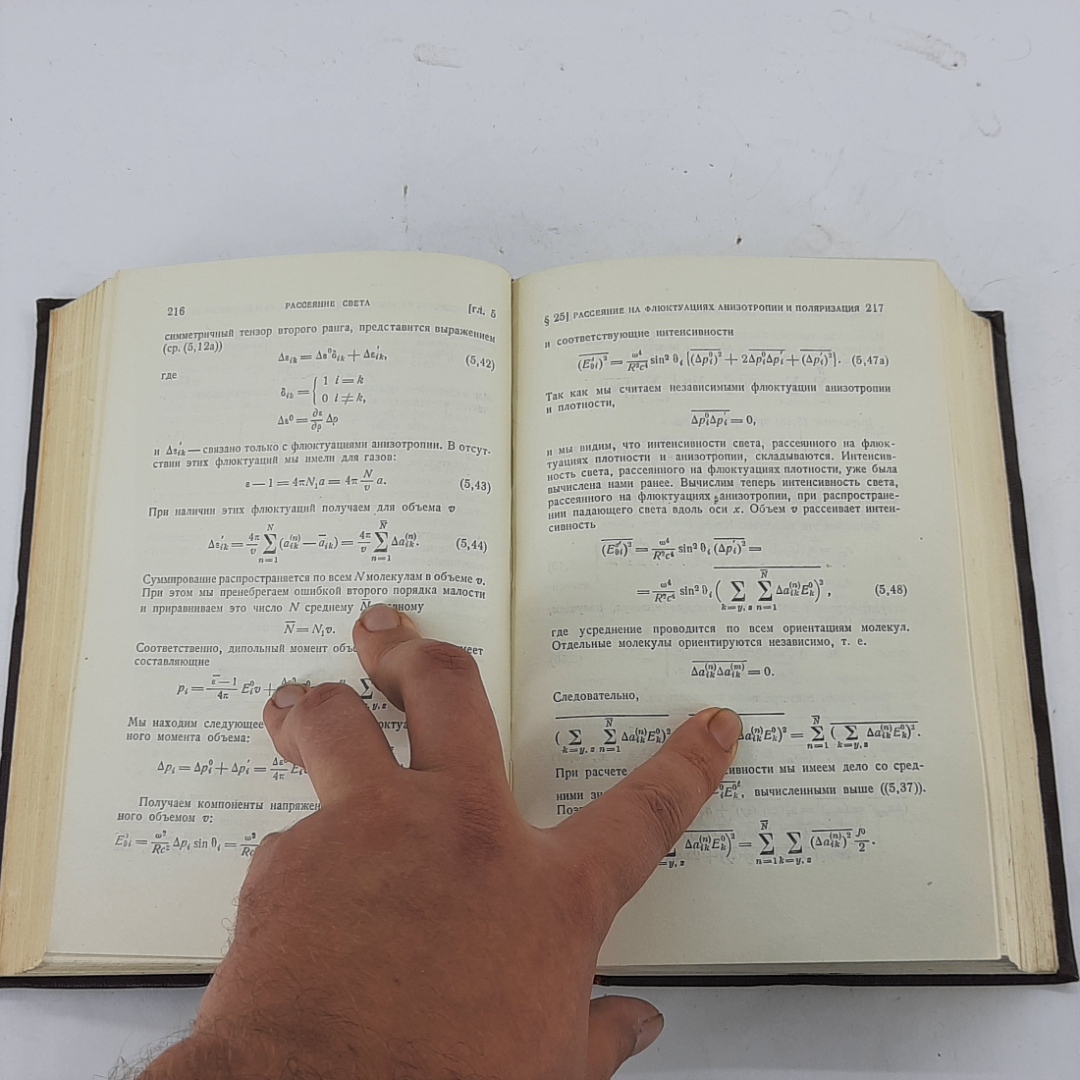 216 РАССЕЯНИЕ СВЕТА [ГЛ. 5
симметричный тензор второго ранга, представится выражением
(ср. (5,12а))
Δε_{ik} = Δε⁰δ_{ik} + Δε′_{ik}, (5,42)
где
δ_{ik} = { 1 i = k
0 i ≠ k,
Δε⁰ = ∂ε/∂ρ Δρ
и Δε′_{ik} — связано только с флюктуациями анизотропии. В отсут-
ствии этих флюктуаций мы имели для газов:
ε — 1 = 4πN₁a = 4π N/v a. (5,43)
При наличии этих флюктуаций получаем для объема v
Δε′_{ik} = 4π/v ∑_{n=1}^{N} (a_{ik}^{(n)} — ā_{ik}) = 4π/v ∑_{n=1}^{N̄} Δa_{ik}^{(n)}. (5,44)
Суммирование распространяется по всем N молекулам в объеме v.
При этом мы пренебрегаем ошибкой второго порядка малости
и приравниваем это число N среднему N̄
N̄ = N₁v.
Соответственно, дипольный момент
составляющие
p_i = (ε̄ — 1)/4π E_i⁰ v +
Мы находим следующее
ного момента объема:
Δp_i = Δp_i⁰ + Δp_i′ =
Получаем компоненты
ного объемом v:
E′_{θi} = ω²/Rc² Δp_i sin θ_i =
§ 25] РАССЕЯНИЕ НА ФЛЮКТУАЦИЯХ АНИЗОТРОПИИ И ПОЛЯРИЗАЦИЯ 217
и соответствующие интенсивности
\overline{(E′_{θi})²} = ω⁴/R²c⁴ sin² θ_i [\overline{(Δp_i⁰)²} + 2\overline{Δp_i⁰Δp_i′} + \overline{(Δp_i′)²}]. (5,47а)
Так как мы считаем независимыми флюктуации анизотропии
и плотности,
\overline{Δp_i⁰Δp_i′} = 0,
и мы видим, что интенсивности света, рассеянного на флюк-
туациях плотности и анизотропии, складываются. Интенсив-
ность света, рассеянного на флюктуациях плотности, уже была
вычислена нами ранее. Вычислим теперь интенсивность света,
рассеянного на флюктуациях анизотропии, при распростране-
нии падающего света вдоль оси x. Объем v рассеивает интен-
сивность
\overline{(E′_{θi})²} = ω⁴/R²c⁴ sin² θ_i \overline{(Δp_i′)²} =
= ω⁴/R²c⁴ sin² θ_i \overline{(∑_{k=y, z} ∑_{n=1}^{N̄} Δa_{ik}^{(n)}E_k⁰)²}, (5,48)
где усреднение проводится по всем ориентациям молекул.
Отдельные молекулы ориентируются независимо, т. е.
\overline{Δa_{ik}^{(n)}Δa_{ik}^{(m)}} = 0.
Следовательно,
\overline{(∑_{k=y, z} ∑_{n=1}^{N̄} Δa_{ik}^{(n)}E_k⁰)²} Δa_{ik}^{(n)}E_k⁰)² = ∑_{n=1}^{N̄} \overline{(∑_{k=y, z} Δa_{ik}^{(n)}E_k⁰)²}.
При расчете мы имеем дело со сред-
ними вычисленными выше ((5,37)).
Δa_{ik}^{(n)}E_k⁰)² = ∑_{n=1}^{N̄} ∑_{k=y, z} \overline{(Δa_{ik}^{(n)})²} J⁰/2.